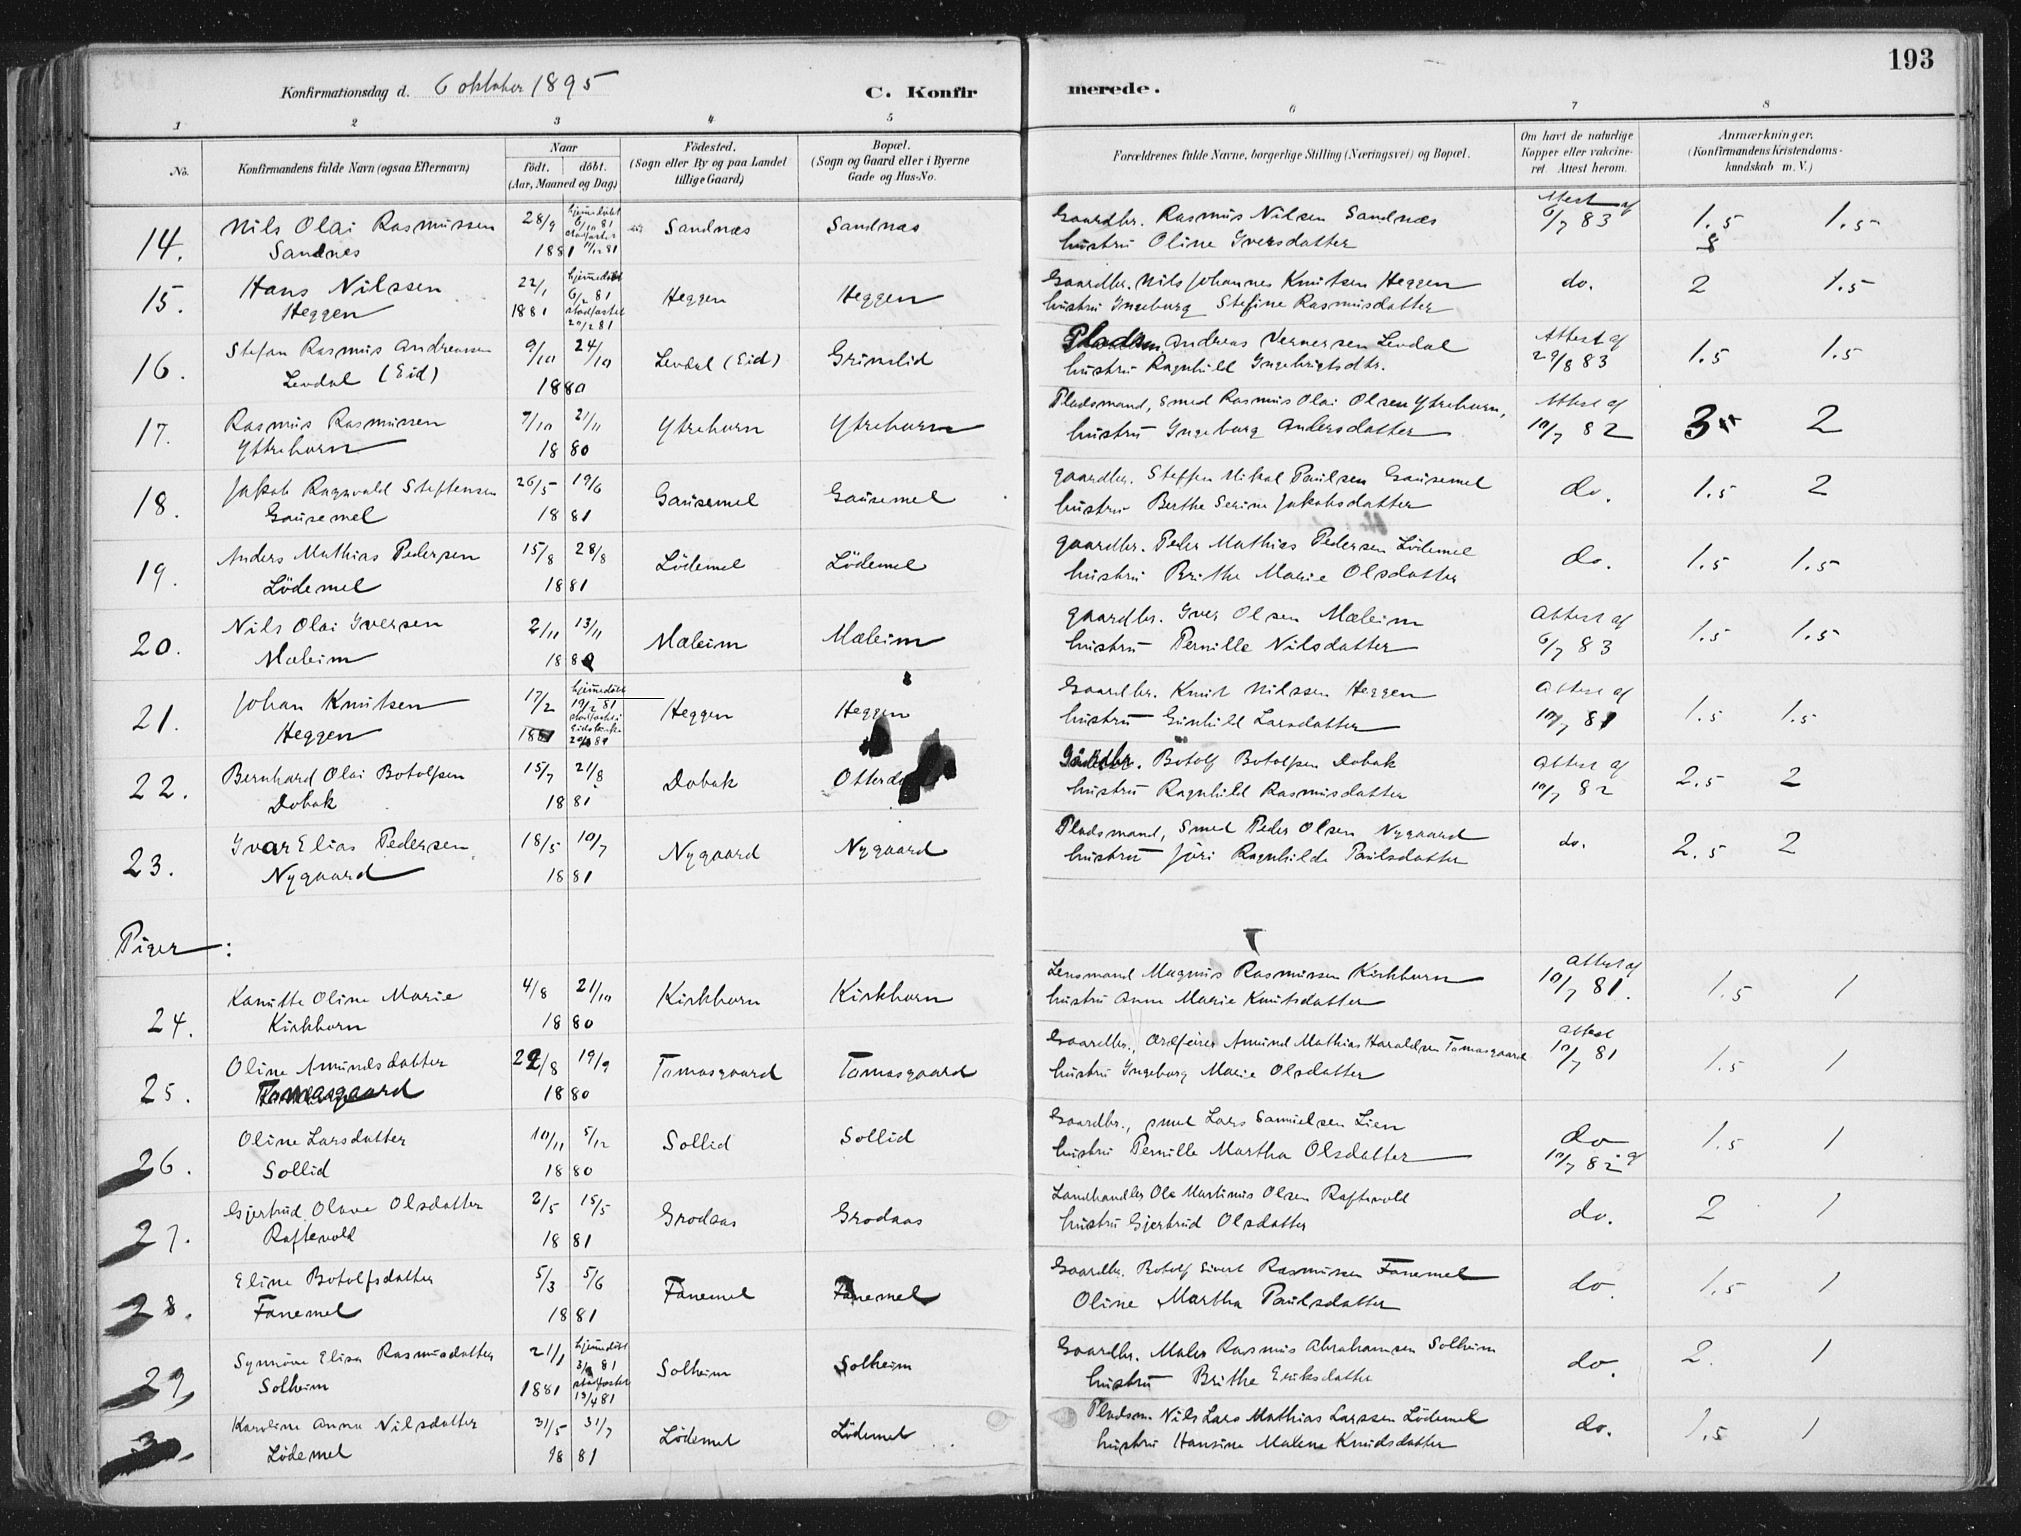 193
Konfirmationsdag d. 6 oktober 1895
C. Konfirmerede.
1 2 3 4 5 6 7 8
No.
Konfirmandens fulde Navn (ogsaa Efternavn)
Naar
født. døbt.
(Aar, Maaned og Dag)
Fødested.
(Sogn eller By og paa Landet
tillige Gaard)
Bopæl.
(Sogn og Gaard eller i Byerne
Gade og Hus-No.
Forældrenes fulde Navne, borgerlige Stilling (Næringsvei) og Bopæl.
Om havt de naturlige
Kopper eller vakcine-
ret. Attest herom.
Anmærkninger.
(Konfirmandens Kristendoms-
kundskab m. V.)
14. Nils Olai Rasmussen 28/9 hjemmedøbt 6/10 81 Sandnæs Sandnæs Gaardbr. Rasmus Nilsen Sandnæs Attest af 6/7 83 1.5 1.5
Sandnes 1881 stadfæstet 11/12 81 hustru Oline Iversdatter
15. Hans Nilssen 22/1 hjemmedøbt 6/2 81 Heggen Heggen Gaardbr. Nils Johannes Knutsen Heggen do. 2 1.5
Heggen 1881 stadfæstet 20/2 81 hustru Ingeborg Stefine Rasmusdatter
16. Stefan Rasmus Andreassen 9/10 24/10 Levdal (Eid) Grimslid Pladsm. Andreas Vernersen Levdal Attest af 29/8 83 1.5 1.5
Levdal (Eid) 1880 hustru Ragnhild Ingebrigtsdtr.
17. Rasmus Rasmussen 7/10 21/11 Ytrehorn Ytrehorn Pladsmand, Smed Rasmus Olai Olsen Ytrehorn, Attest af 10/7 82 3 2
Yttrehorn 1880 hustru Ingeborg Andersdatter
18. Jakob Ragnvald Steffensen 26/5 19/6 Gausemel Gausemel gaardbr. Steffen Mikal Paulsen Gausemel do. 1.5 2
Gausemel 1881 hustru Berthe Serine Jakobsdatter
19. Anders Mathias Pedersen 15/8 28/8 Lødemel Lødemel gaardbr. Peder Mathias Pedersen Lødemel do. 1.5 1.5
Lødemel 1881 hustru Brithe Marie Olsdatter
20. Nils Olai Iversen 2/11 13/11 Mæleim Mæleim gaardbr. Iver Olsen Mæleim Attest af 6/7 83 1.5 1.5
Mæleim 1880 hustru Pernille Nilsdatter
21. Johan Knutsen 17/2 hjemmedøbt 19/2 81 Heggen Heggen Gaardbr. Knut Nilssen Heggen Attest af 10/7 81 1.5 1.5
Heggen 1881 hustru Gunhild Larsdatter
22. Bernhard Olai Botolfsen 15/7 21/8 Dobak Gårdbr. Botolf Botolfsen Dobak Attest af 10/7 82 2.5 2
Dobak 1881 hustru Ragnhild Rasmusdatter
23. Ivar Elias Pedersen 18/5 10/7 Nygaard Nygaard Pladsmand, Smed Peder Olsen Nygaard do. 2.5 2
Nygaard 1881 hustru Jøri Ragnhilde Paulsdatter
Piger:
24. Kanutte Oline Marie 4/8 21/10 Kirkhorn Kirkhorn Lensmand Magnus Rasmussen Kirkhorn Attest af 10/7 81. 1.5 1
Kirkhorn 1880 hustru Anne Marie Knutsdatter
25. Oline Amundsdatter 22/8 19/9 Tomasgaard Tomasgaard Gaardbr., Ordfører Amund Mathias Haraldsen Tomasgaard attest 10/7 81 1.5 1
Tomasgaard 1880 hustru Ingeborg Marie Olsdatter
26. Oline Larsdatter 10/11 5/12 Sollid Sollid Gaardbr., smed Lars Samuelsen Lien do af 10/7 82 1.5 1
Sollid 1880 hustru Pernille Martha Olsdatter
27. Gjertrud Olave Olsdatter 2/5 15/5 Grodaas Grodaas Landhandler Ole Martinus Olsen Raftevold do. 2 1
Raftevold 1881 hustru Gjertrud Olsdatter
28. Eline Botolfsdatter 5/3 5/6 Fanemel Fanemel Gaardbr. Botolf Sivert Rasmussen Fanemel do. 1.5 1
Fanemel 1881 Oline Martha Paulsdatter
29, Synnøve Elisa Rasmusdatter 21/1 hjemmedøbt 81 Solheim Solheim Gaardbr. Maler Rasmus Abrahamsen Solheim do. 2. 1
Solheim 1881 stadfæstet 13/4 81 hustru Brithe Eriksdatter
Karoline Anna Nilsdatter 31/5 31/7 Lødemel Lødemel Pladsm. Nils Lars Mathias Larssen Lødemel do. 1.5 1
Lødemel 1881 hustru Hansine Malene Knudsdatter